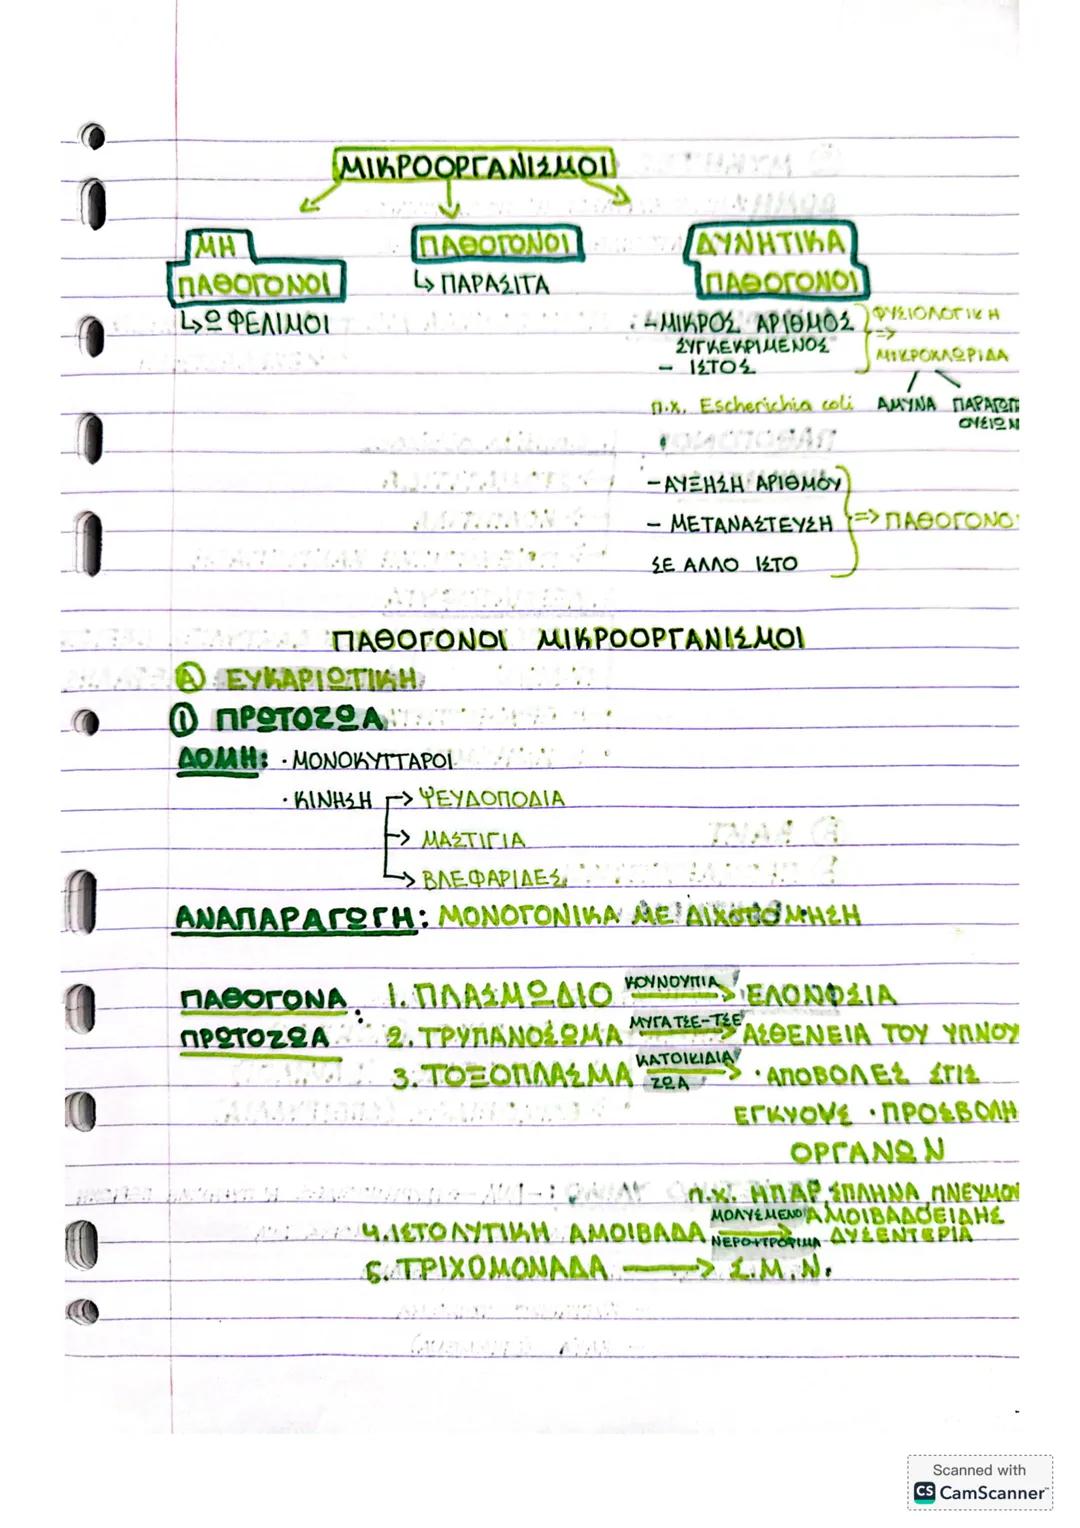 ΜΙΚΡΟΟΡΓΑΝΙΣΜΟΙ
ΜΗ ΠΑΘΟΓΟΝΟΙ
↳ΩΦΕΛΙΜΟΙ
ΠΑΘΟΓΟΝΟΙ
↳ΠΑΡΑΣΙΤΑ
ΔΥΝΗΤΙΚΑ
ΠΑΘΟΓΟΝΟΙ
-ΜΙΚΡΟΣ ΑΡΙΘΜΟΣ
ΣΥΓΚΕΚΡΙΜΕΝΟΣ
- ΙΣΤΟΣ
ΦΥΣΙΟΛΟΓΙΚΗ
=>
ΜΙΚΡΟΧΛΩΡΙΔΑ
π.χ. Escherichia coli
ΑΜΥΝΑ
ΠΑΡΑΓΩΓ
ΟΥΣΙΩΝ
-ΑΥΞΗΣΗ ΑΡΙΘΜΟΥ
- ΜΕΤΑΝΑΣΤΕΥΣΗ
ΣΕ ΑΛΛΟ ΙΣΤΟ
=> ΠΑΘΟΓΟΝΟ
ΠΑΘΟΓΟΝΟΙ ΜΙΚΡΟΟΡΓΑΝΙΣΜΟΙ
Α ΕΥΚΑΡΙΩΤΙΚΗ
1 ΠΡΩΤΟΖΩΑ
ΔΟΜΗ: · ΜΟΝΟΚΥΤΤΑΡΟΙ
· ΚΙΝΗΣΗ → ΨΕΥΔΟΠΟΔΙΑ
→ ΜΑΣΤΙΓΙΑ
→ ΒΛΕΦΑΡΙΔΕΣ
ΑΝΑΠΑΡΑΓΩΓΗ: ΜΟΝΟΓΟΝΙΚΑ ΜΕ ΔΙΧΟΤΟΜΗΣΗ
ΠΑΘΟΓΟΝΑ
ΠΡΩΤΟΖΩΑ :
1. ΠΛΑΣΜΩΔΙΟ ΚΟΥΝΟΥΠΙΑ → ΕΛΟΝΟΣΙΑ
2. ΤΡΥΠΑΝΟΣΩΜΑ ΜΥΓΑ ΤΣΕ-ΤΣΕ → ΑΣΘΕΝΕΙΑ ΤΟΥ ΥΠΝΟΥ
3. ΤΟΞΟΠΛΑΣΜΑ ΚΑΤΟΙΚΙΔΙΑ ΖΩΑ → · ΑΠΟΒΟΛΕΣ ΣΤΙΣ
ΕΓΚΥΟΥΣ · ΠΡΟΣΒΟΛΗ
ΟΡΓΑΝΩΝ
π.χ. ΗΠΑΡ, ΣΠΛΗΝΑ, ΠΝΕΥΜΟΝ
4. ΙΣΤΟΛΥΤΙΚΗ ΑΜΟΙΒΑΔΑ ΜΟΛΥΣΜΕΝΟ ΝΕΡΟ+ΤΡΟΦΙΜΑ → ΑΜΟΙΒΑΔΟΕΙΔΗΣ
ΔΥΣΕΝΤΕΡΙΑ
5. ΤΡΙΧΟΜΟΝΑΔΑ → Σ.Μ.Ν.
Scanned with
CS CamScanner